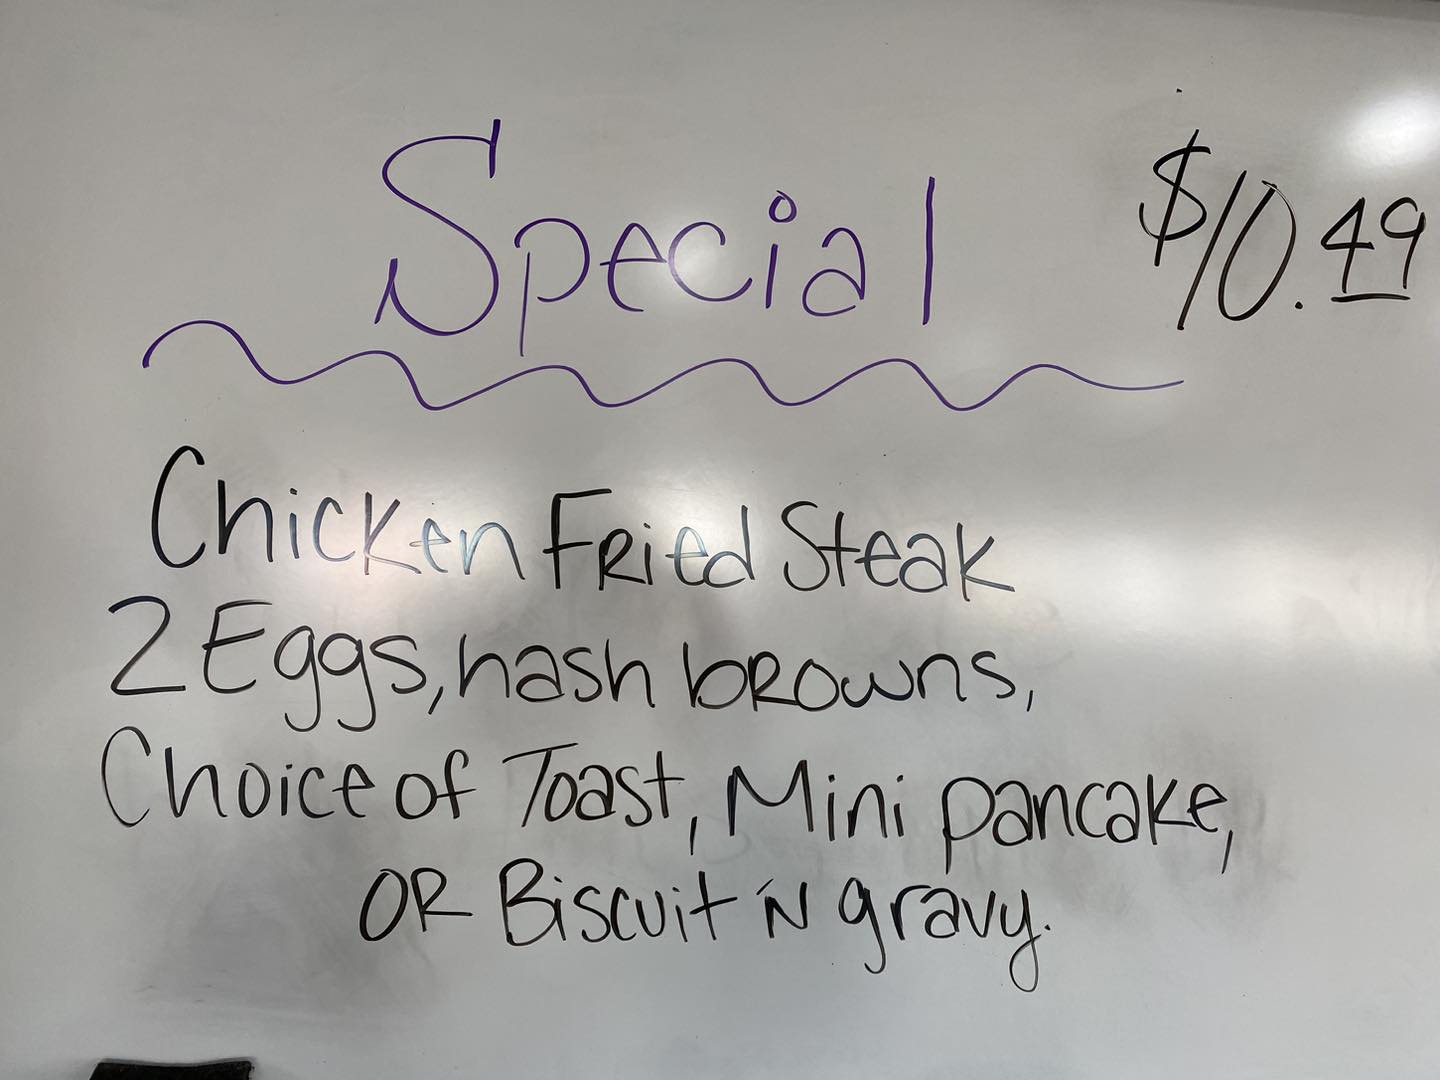 Special $10.49
Chicken Fried Steak
2 Eggs, hash browns,
Choice of Toast, Mini pancake,
OR Biscuit 'N gravy.